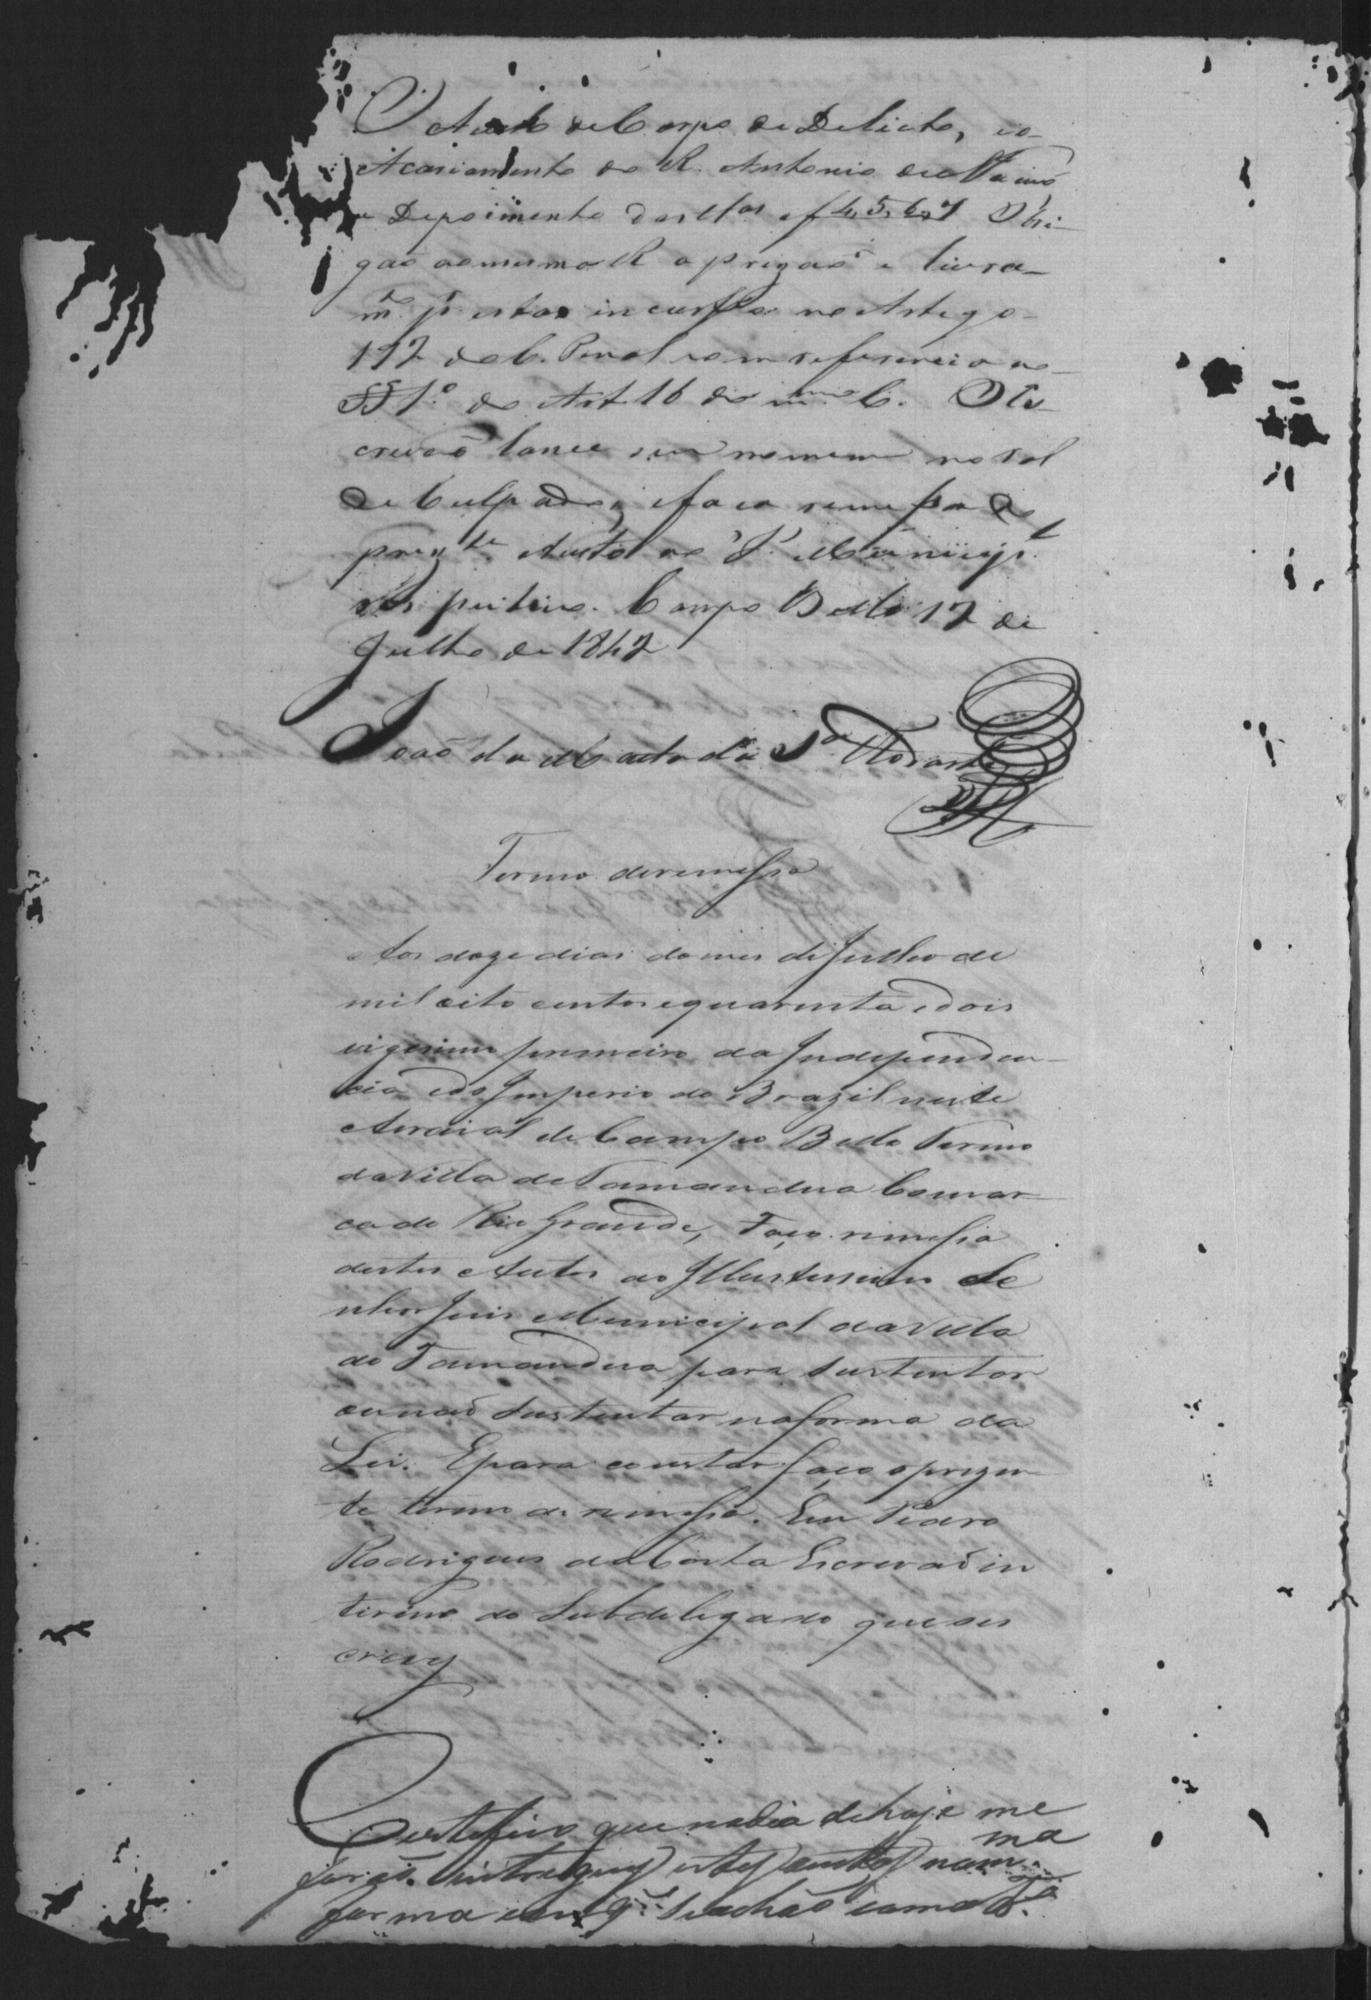 O Auto de Corpo de Delicto, e o
Acariamento do R. Antonio
e Depoimento das tt.as af 4, 5, 6, e 7 Obri-
gaõ ao mesmo R a prizaõ e livra-
m.to p.r estar incurso no Artigo
192 do C. Penal com referencia ao
§§ 1.º do Art 16 do m.mo C. O Es-
crivaõ lance seu nome no rol
de Culpados, e faça remessa do
prez.te Auto ao J. Municip.l
respectivo. Campo Bello 12 de
Julho de 1842
Joaõ da Matta da S.a
Termo de remessa
Aos doze dias do mes de Julho de
mil oito centos e quarenta e dois
vigesimo primeiro da Independen-
cia e do Imperio do Brazil neste
Arraial de Campo Bello Termo
da Villa de Tamandua Comar-
ca do Rio Grande, Faço remessa
destes Autos ao Illustrissimo Se
nhor Juis Municipal da Villa
de Tamandua para sustentar
ou naõ sustentar na forma da
Lei. E para constar faço o prezen-
te termo de remessa. Eu Pedro
Rodrigues da Costa Escrivaõ in
terino do Subdelegado que es
crevy
Certefico que no dia de hoje me
foraõ intregues estes autos na m.ma
forma em q. se achaõ